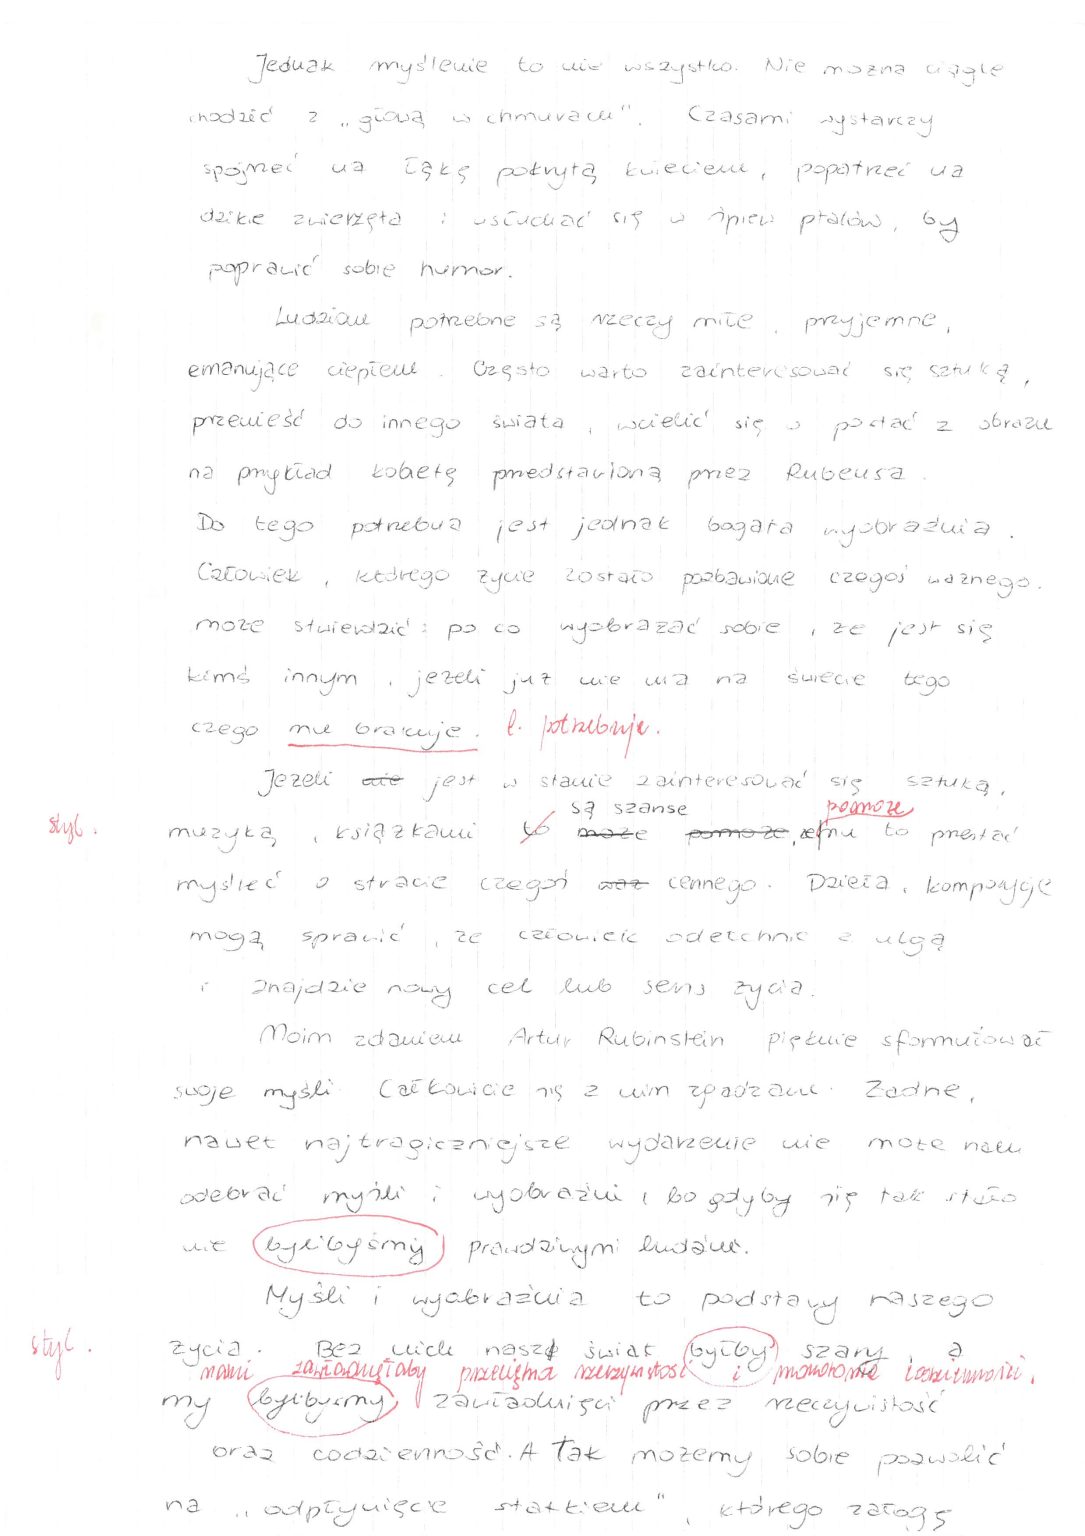 Jednak myślenie to nie wszystko. Nie można ciągle
chodzić z „głową w chmurach". Czasami wystarczy
spojrzeć na łąkę pokrytą kwieciem, popatrzeć na
dzikie zwierzęta i wsłuchać się w śpiew ptaków, by
poprawić sobie humor.
Ludziom potrzebne są rzeczy miłe, przyjemne,
emanujące ciepłem. Często warto zainteresować się sztuką,
przenieść do innego świata, wcielić się w postać z obrazu
na przykład kobietę przedstawioną przez Rubensa.
Do tego potrzebna jest jednak bogata wyobraźnia.
Człowiek, którego życie zostało pozbawione czegoś ważnego.
może stwierdzić: po co wyobrażać sobie, że jest się
kimś innym, jeżeli już nie ma na świecie tego
czego mu brakuje. l. potrzebuje.
Jeżeli nie jest w stanie zainteresować się sztuką,
są szanse pomoże
styl. muzyką, książkami to może pomoże, że mu to przestać
myśleć o stracie czegoś waż cennego. Dzieła, kompozycje
mogą sprawić, że człowiek odetchnie z ulgą
i znajdzie nowy cel lub sens życia.
Moim zdaniem Artur Rubinstein pięknie sformułował
swoje myśli. Całkowicie się z nim zgadzam. Żadne,
nawet najtragiczniejsze wydarzenie nie może nam
odebrać myśli i wyobraźni, bo gdyby się tak stało
nie bylibyśmy prawdziwymi ludźmi.
Myśli i wyobraźnia to podstawy naszego
styl. życia. Bez nich nasz świat byłby szary, a
nami zawładnęłaby przeciętna rzeczywistość i monotonia codzienności.
my bylibyśmy zawładnięci przez rzeczywistość
oraz codzienność. A Tak możemy sobie pozwolić
na „odpłynięcie statkiem", którego załogę